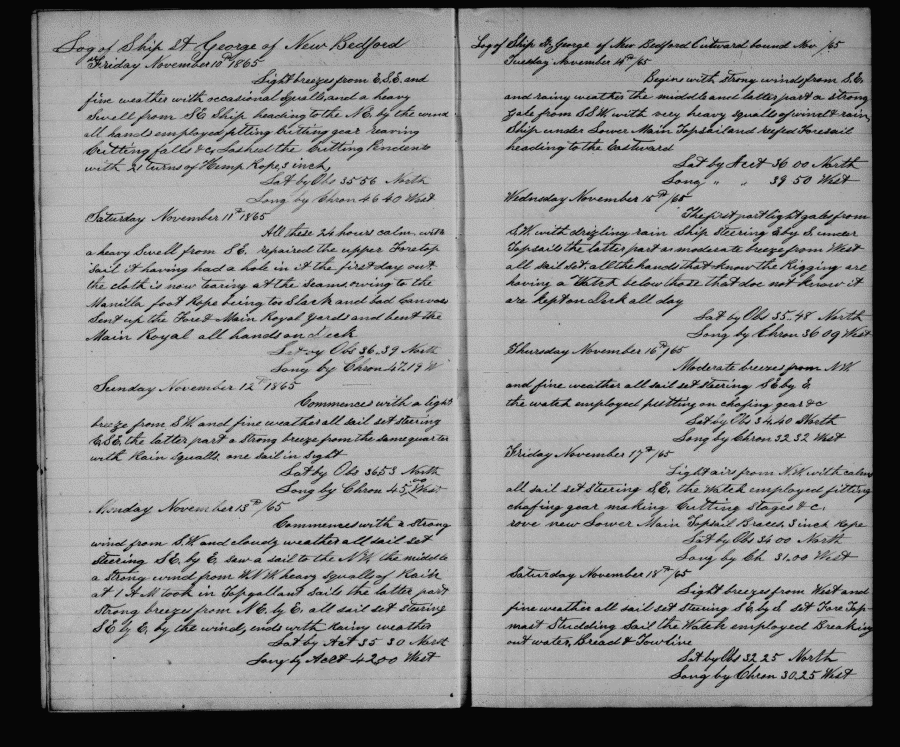 Log of Ship St George of New Bedford
Friday November 10th 1865
Light breezes from E.S.E. and
fine weather with occasional squalls, and a heavy
Swell from SE Ship heading to the N.E. by the wind
all hands employed fitting Cutting gear reaving
Cutting falls &c, Lashed the Cutting
with 21 turns of Hemp Rope, 3 inch,
Lat by Obs 35 56 North
Long by Chron 46 40 West
Saturday November 11th 1865
All these 24 hours calm with
a heavy Swell from S.E. repaired the upper Foretop
sail it having had a hole in it the first day out
the cloth is now tearing at the seams, owing to the
Manilla foot Rope being too Slack and bad Canvas
Sent up the Fore & Main Royal yards and bent the
Main Royal all hands on deck
Lat by Obs 36.39 North
Long by Chron 47.19 W
Sunday November 12th 1865
Commences with a light
breeze from S.W. and fine weather all sail set steering
E.S.E. the latter part a strong breeze from the same quarter
with Rain Squalls, one sail in sight
Lat by Obs 36.53 North
Long by Chron 45,00 West
Monday November 13th /65
Commences with a strong
wind from S.W. and cloudy weather all sail set
steering S.E. by E. saw a sail to the N.W. the middle
a strong wind from W.N.W. heavy squalls of Rain
at 1 A.M. took in Topgallant Sails the latter part
strong breezes from N.E. by E. all sail set steering
S.E. by E. by the wind, ends with Rainy weather
Lat by Act 35 30 North
Long by Acct 42.00 West
Log of Ship St. George of New Bedford Outward bound Nov /65
Tuesday November 14th /65
Begins with strong winds from S.E.
and rainy weather the middle and latter part a strong
gale from S.S.W. with very heavy squalls of wind & rain,
Ship under Lower Main Topsail and reefed Foresail
heading to the Eastward
Lat by Acct 36 00 North
Long " " 39 50 West
Wednesday November 15th /65
The first part light gales from
S.W. with drizling rain Ship Steering E by S. under
Topsails the latter part a moderate breeze from West
all sail set. all the hands that know the Rigging are
having a Watch below those that doe not know it
are kept on Deck all day
Lat by Obs 35.48 North
Long by Chron 36 09 West
Thursday November 16th /65
Moderate breezes from N.W.
and fine weather all sail set steering S.E. by E.
the watch employed putting on chafing gear &c
Lat by Obs 34.40 North
Long by Chron 32.32 West
Friday November 17th /65
Light airs from N.W. with calms
all sail set steering S.E, the Watch employed fitting
chafing gear making Cutting Stages &c,
rove new Lower Main Topsail Braces, 3 inch rope
Lat by Obs 34 00 North
Long by Ch 31,00 West
Saturday November 18th /65
Light breezes from West and
fine weather all sail set Steering S.E. by S set Fore Top-
mast Studding Sail the Watch employed Breaking
out water, Bread & Towline
Lat by Obs 32 25 North
Long by Chron 30.25 West